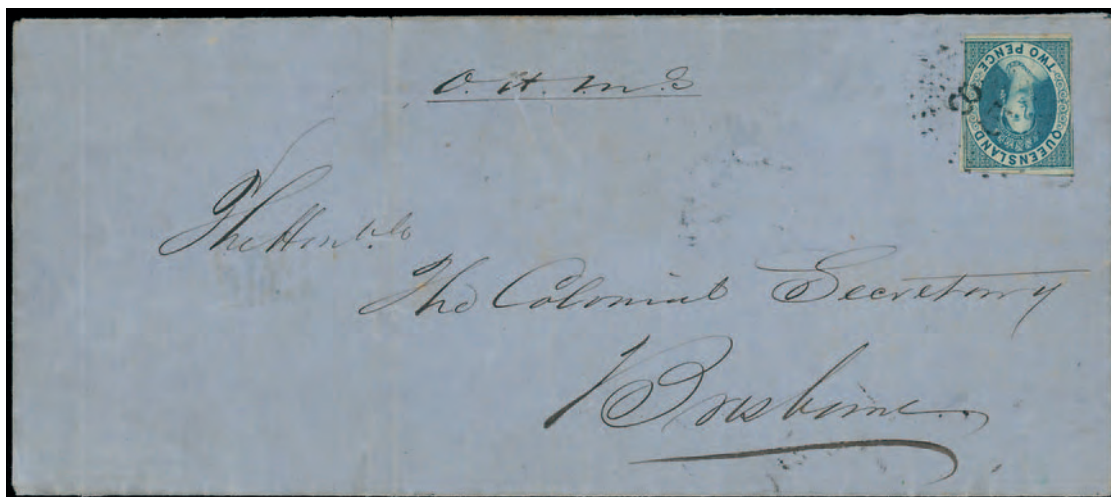 O. H. M. S
QUEENSLAND
TWO PENCE
The Honble
The Colonial Secretary
Brisbane